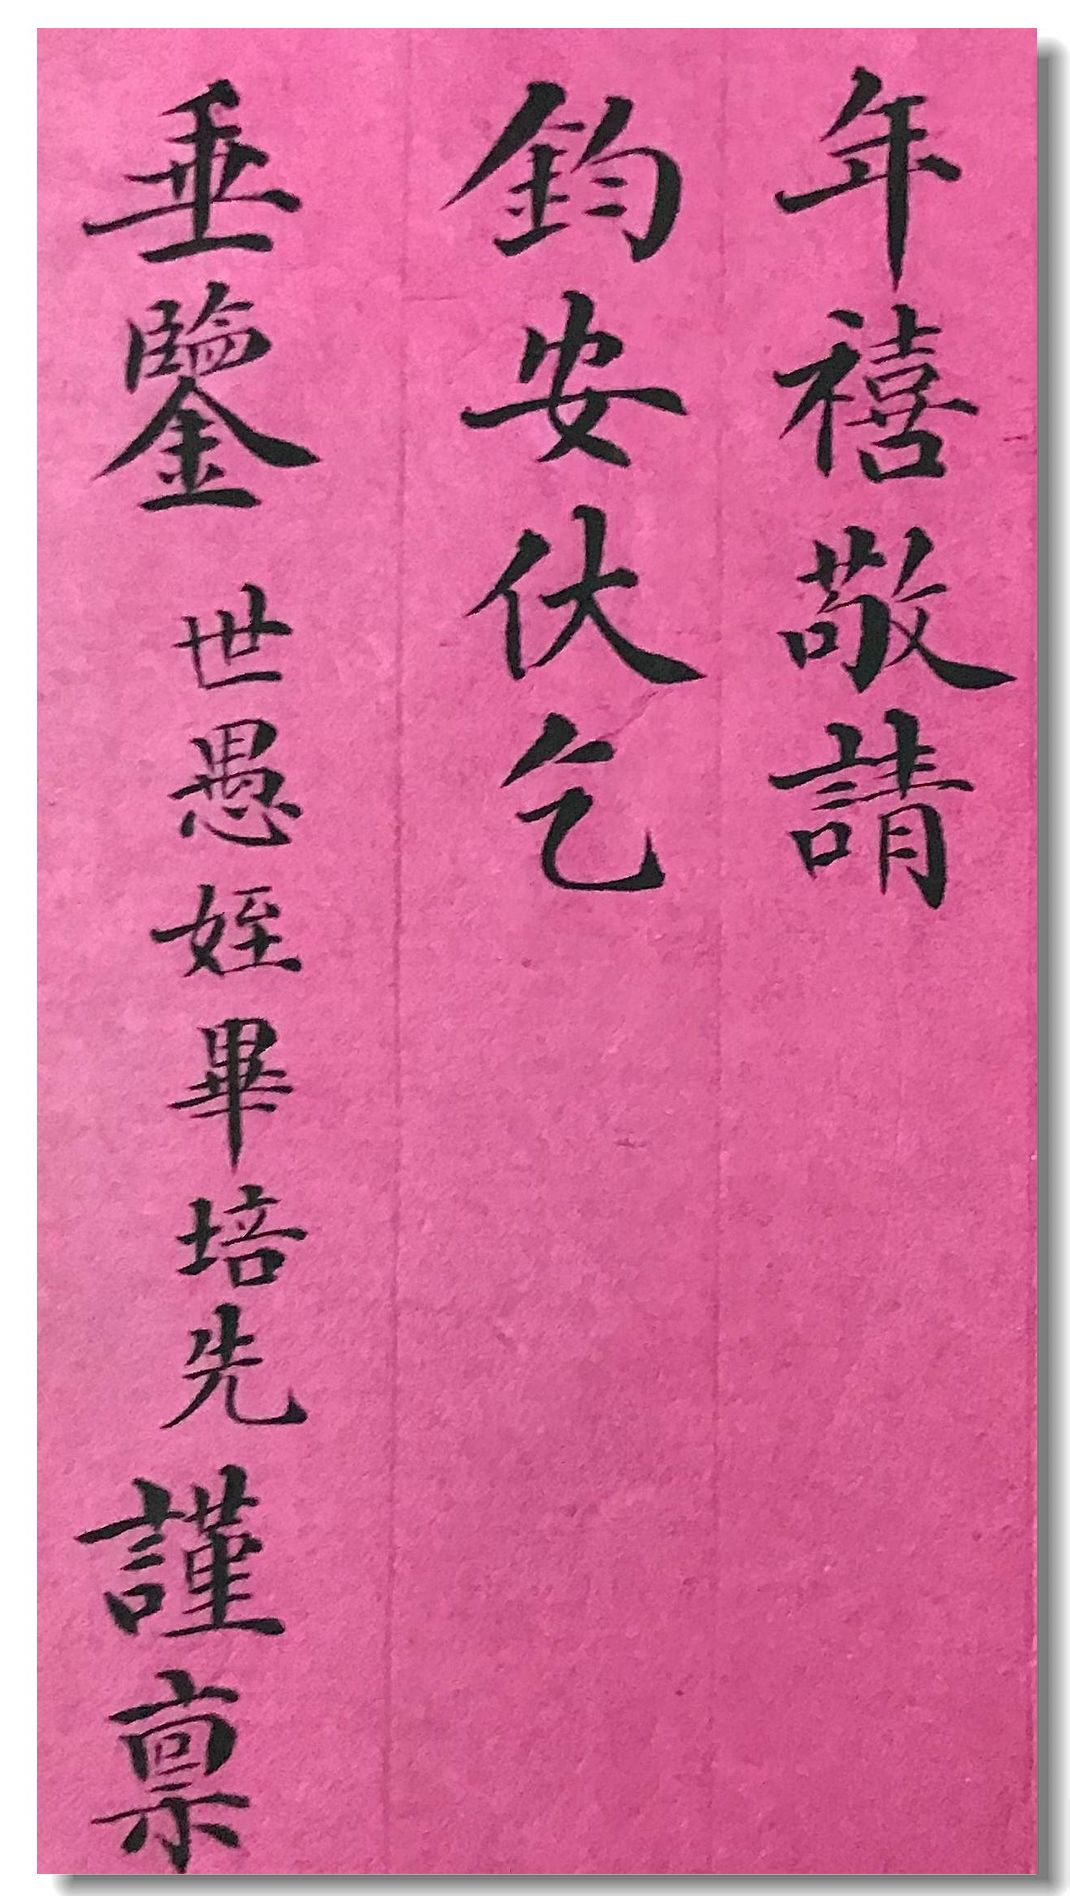 年禧敬請
鈞安伏乞
垂鑒 世愚姪畢培先謹稟